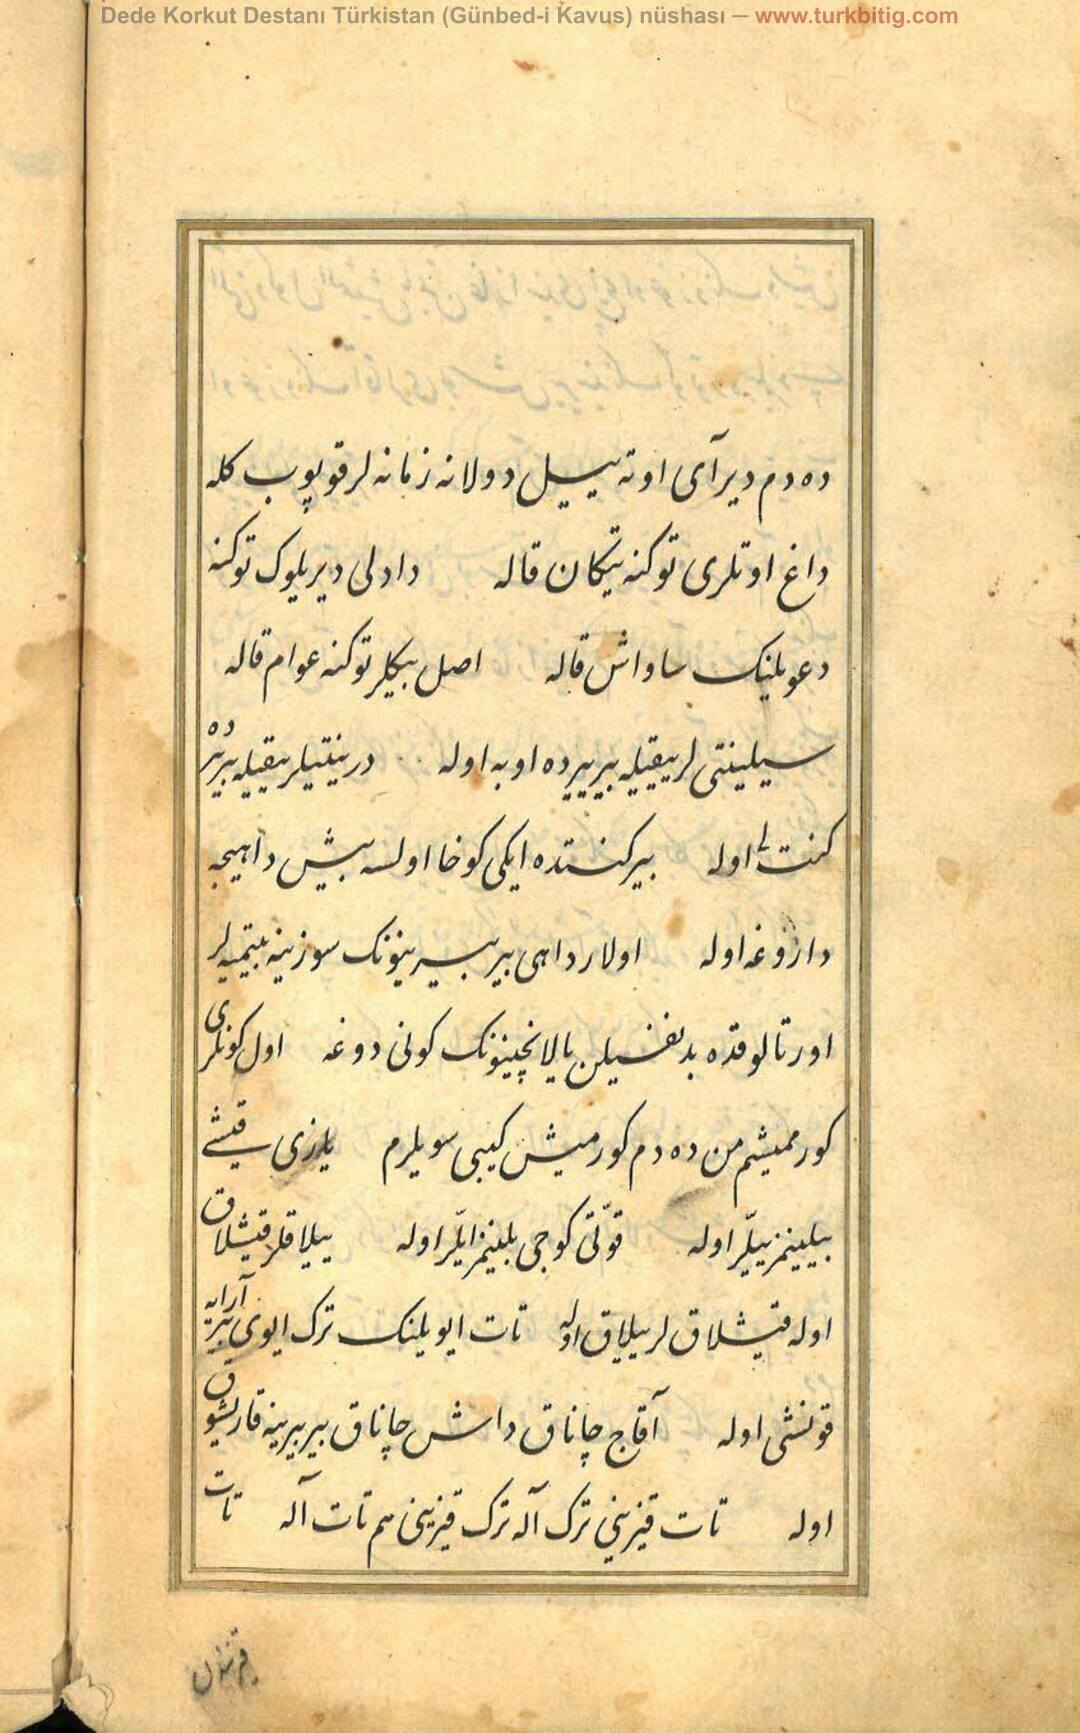 Dede Korkut Destanı Türkistan (Günbed-i Kavus) nüshası — www.turkbitig.com
ده دم دیر آی اوته ییل دولانه زمانه لر قوپوب کله
داغ اوتلری توکنه تیکان قاله دادلی دیریلوک توکنه
دعویلینک ساواش قاله اصل بیکلر توکنه عوام قاله
سیلینتی لر ییقیله بیر بیرده اوبه اوله درینتیلر ییقیله بیر بیر ده
کنت اوله بیر کنتده ایکی کوخا اولسه بیش داهیجه
داروغه اوله اولار داهی بیر بیرینونک سوزینه بیتمیه لر
اورتالوقده بدنفسیلن یالانچینونک کونی دوغه اول کونلری
کورممیشم من ده دم کورمیش کیبی سویلرم یارزی قیشی
بیلینمز ییلّر اوله قوّتی کوجی بلینمز ایلّر اوله ییلاقلر قیشلاق
اوله قیشلاق لر ییلاق اوله تات ایویلنک ترک ایوی بیر آرایه
قونشی اوله آقاج چاناق داش چاناق بیر بیرینه قاریشوق
اوله تات قیزینی ترک آله ترک قیزینی هم تات آله تات